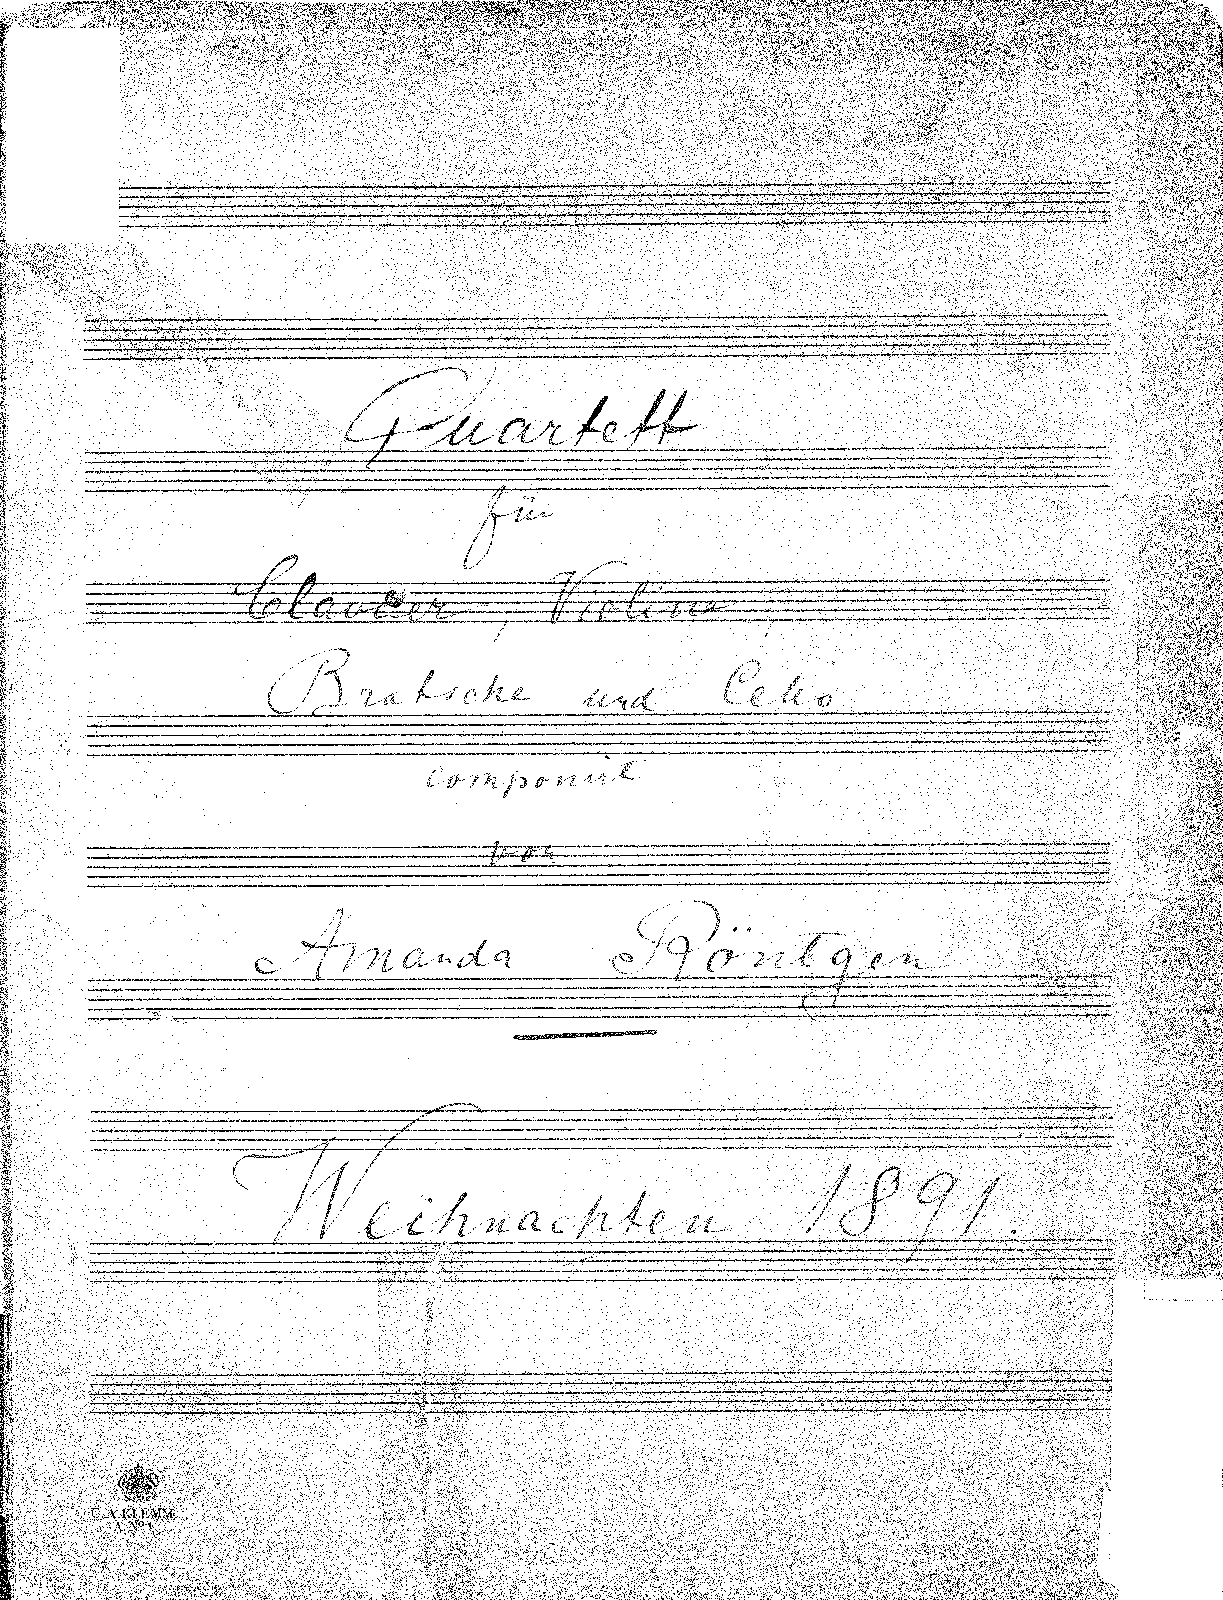 Quartett
für
Clavier, Violine,
Bratsche und Cello
componirt
von
Amanda Röntgen
Weihnachten 1891.
C. A. KLEMM
A. No 1.